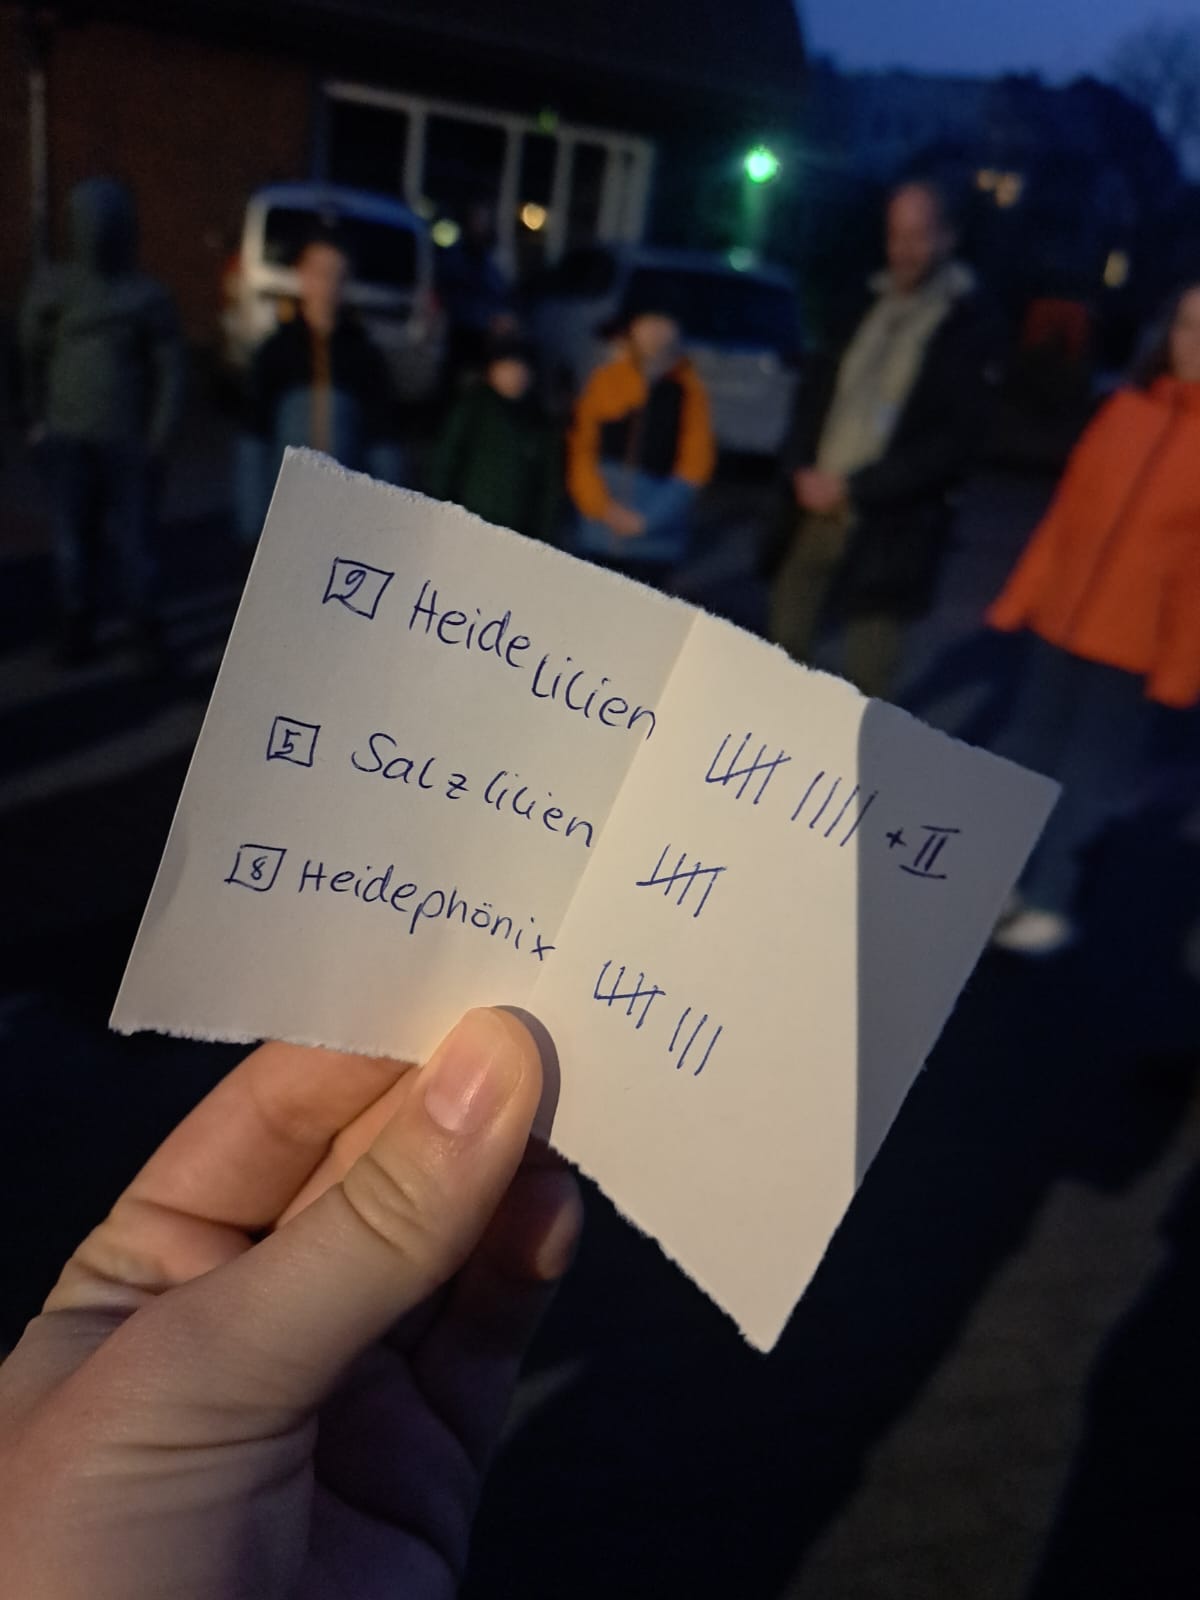 9 Heidelilien 卌 |||| + II
5 Salzlilien 卌
8 Heidephönix 卌 |||